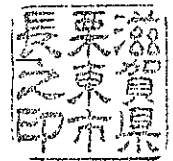 滋賀県
栗東市
長之印